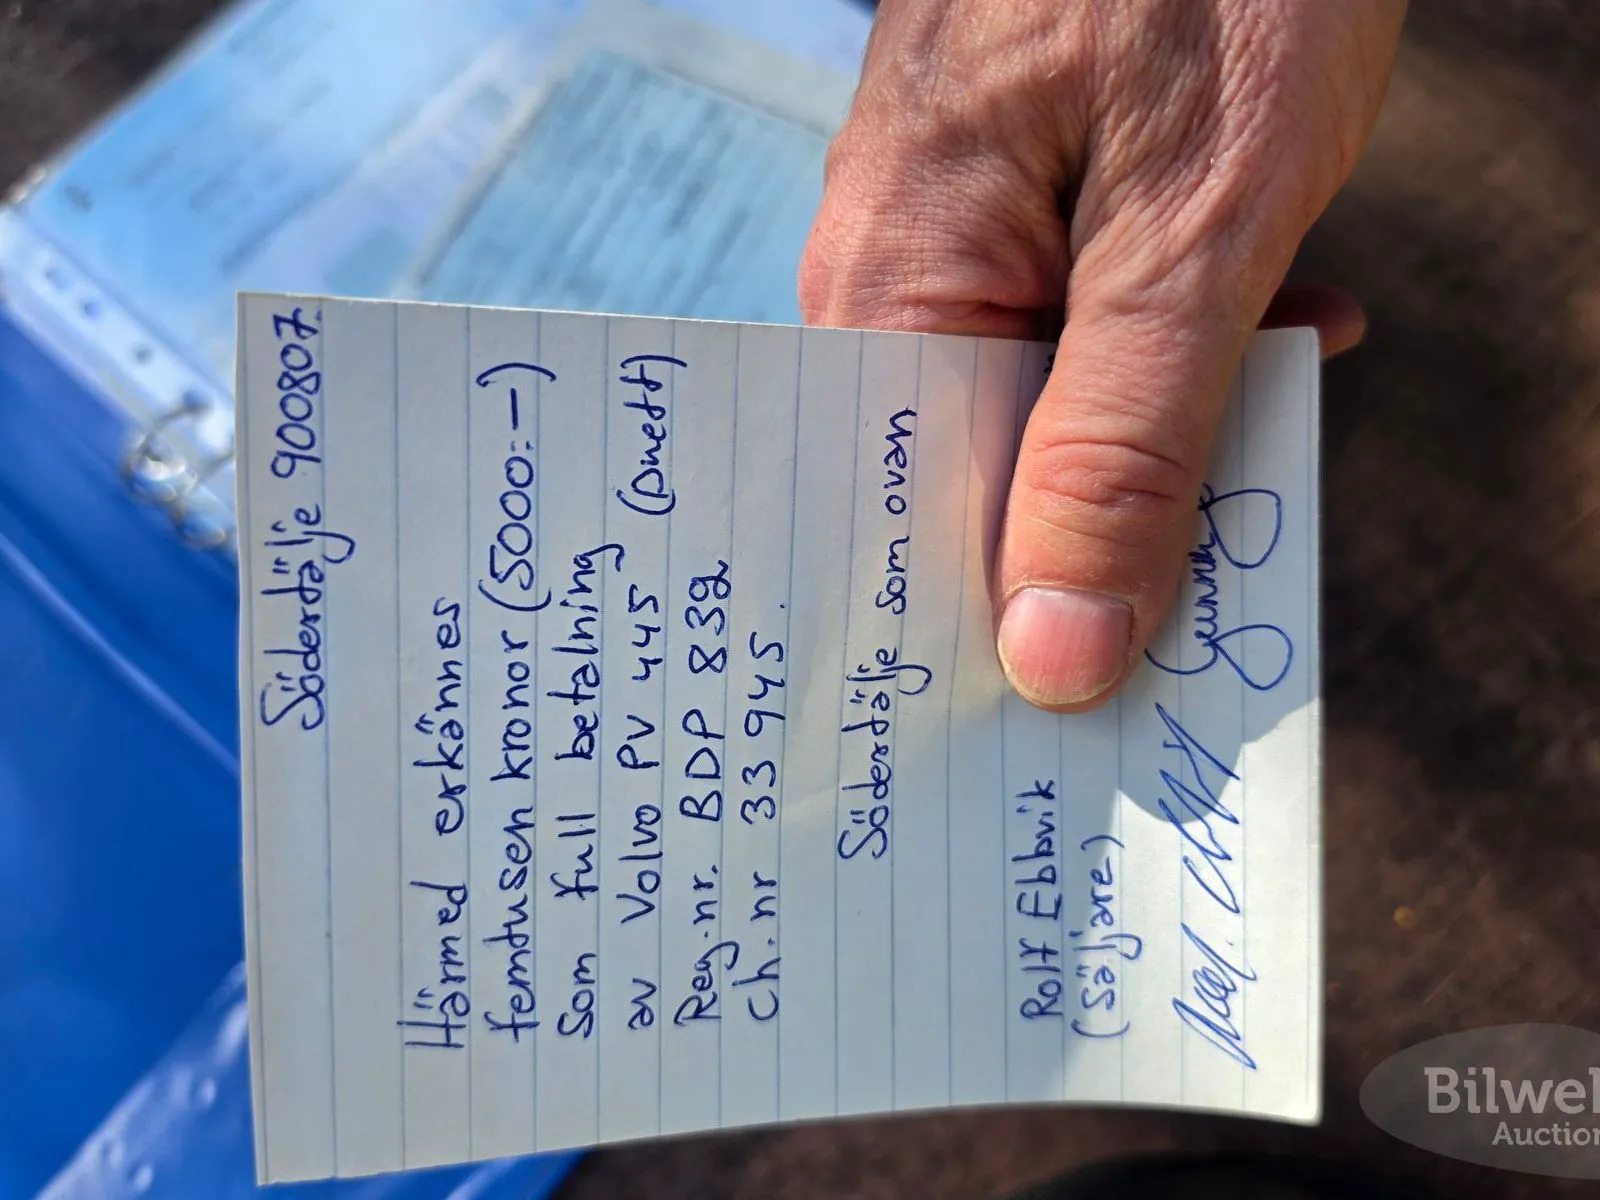 Södertälje 900807.
Härmed erkännes
femtusen kronor (5000:-)
som full betalning
av Volvo PV 445 (Duett)
Reg.nr. BDP 832
Ch.nr 33 945.
Södertälje som ovan
Rolf Ebbvik
(Säljare)
Bilwel
Auction